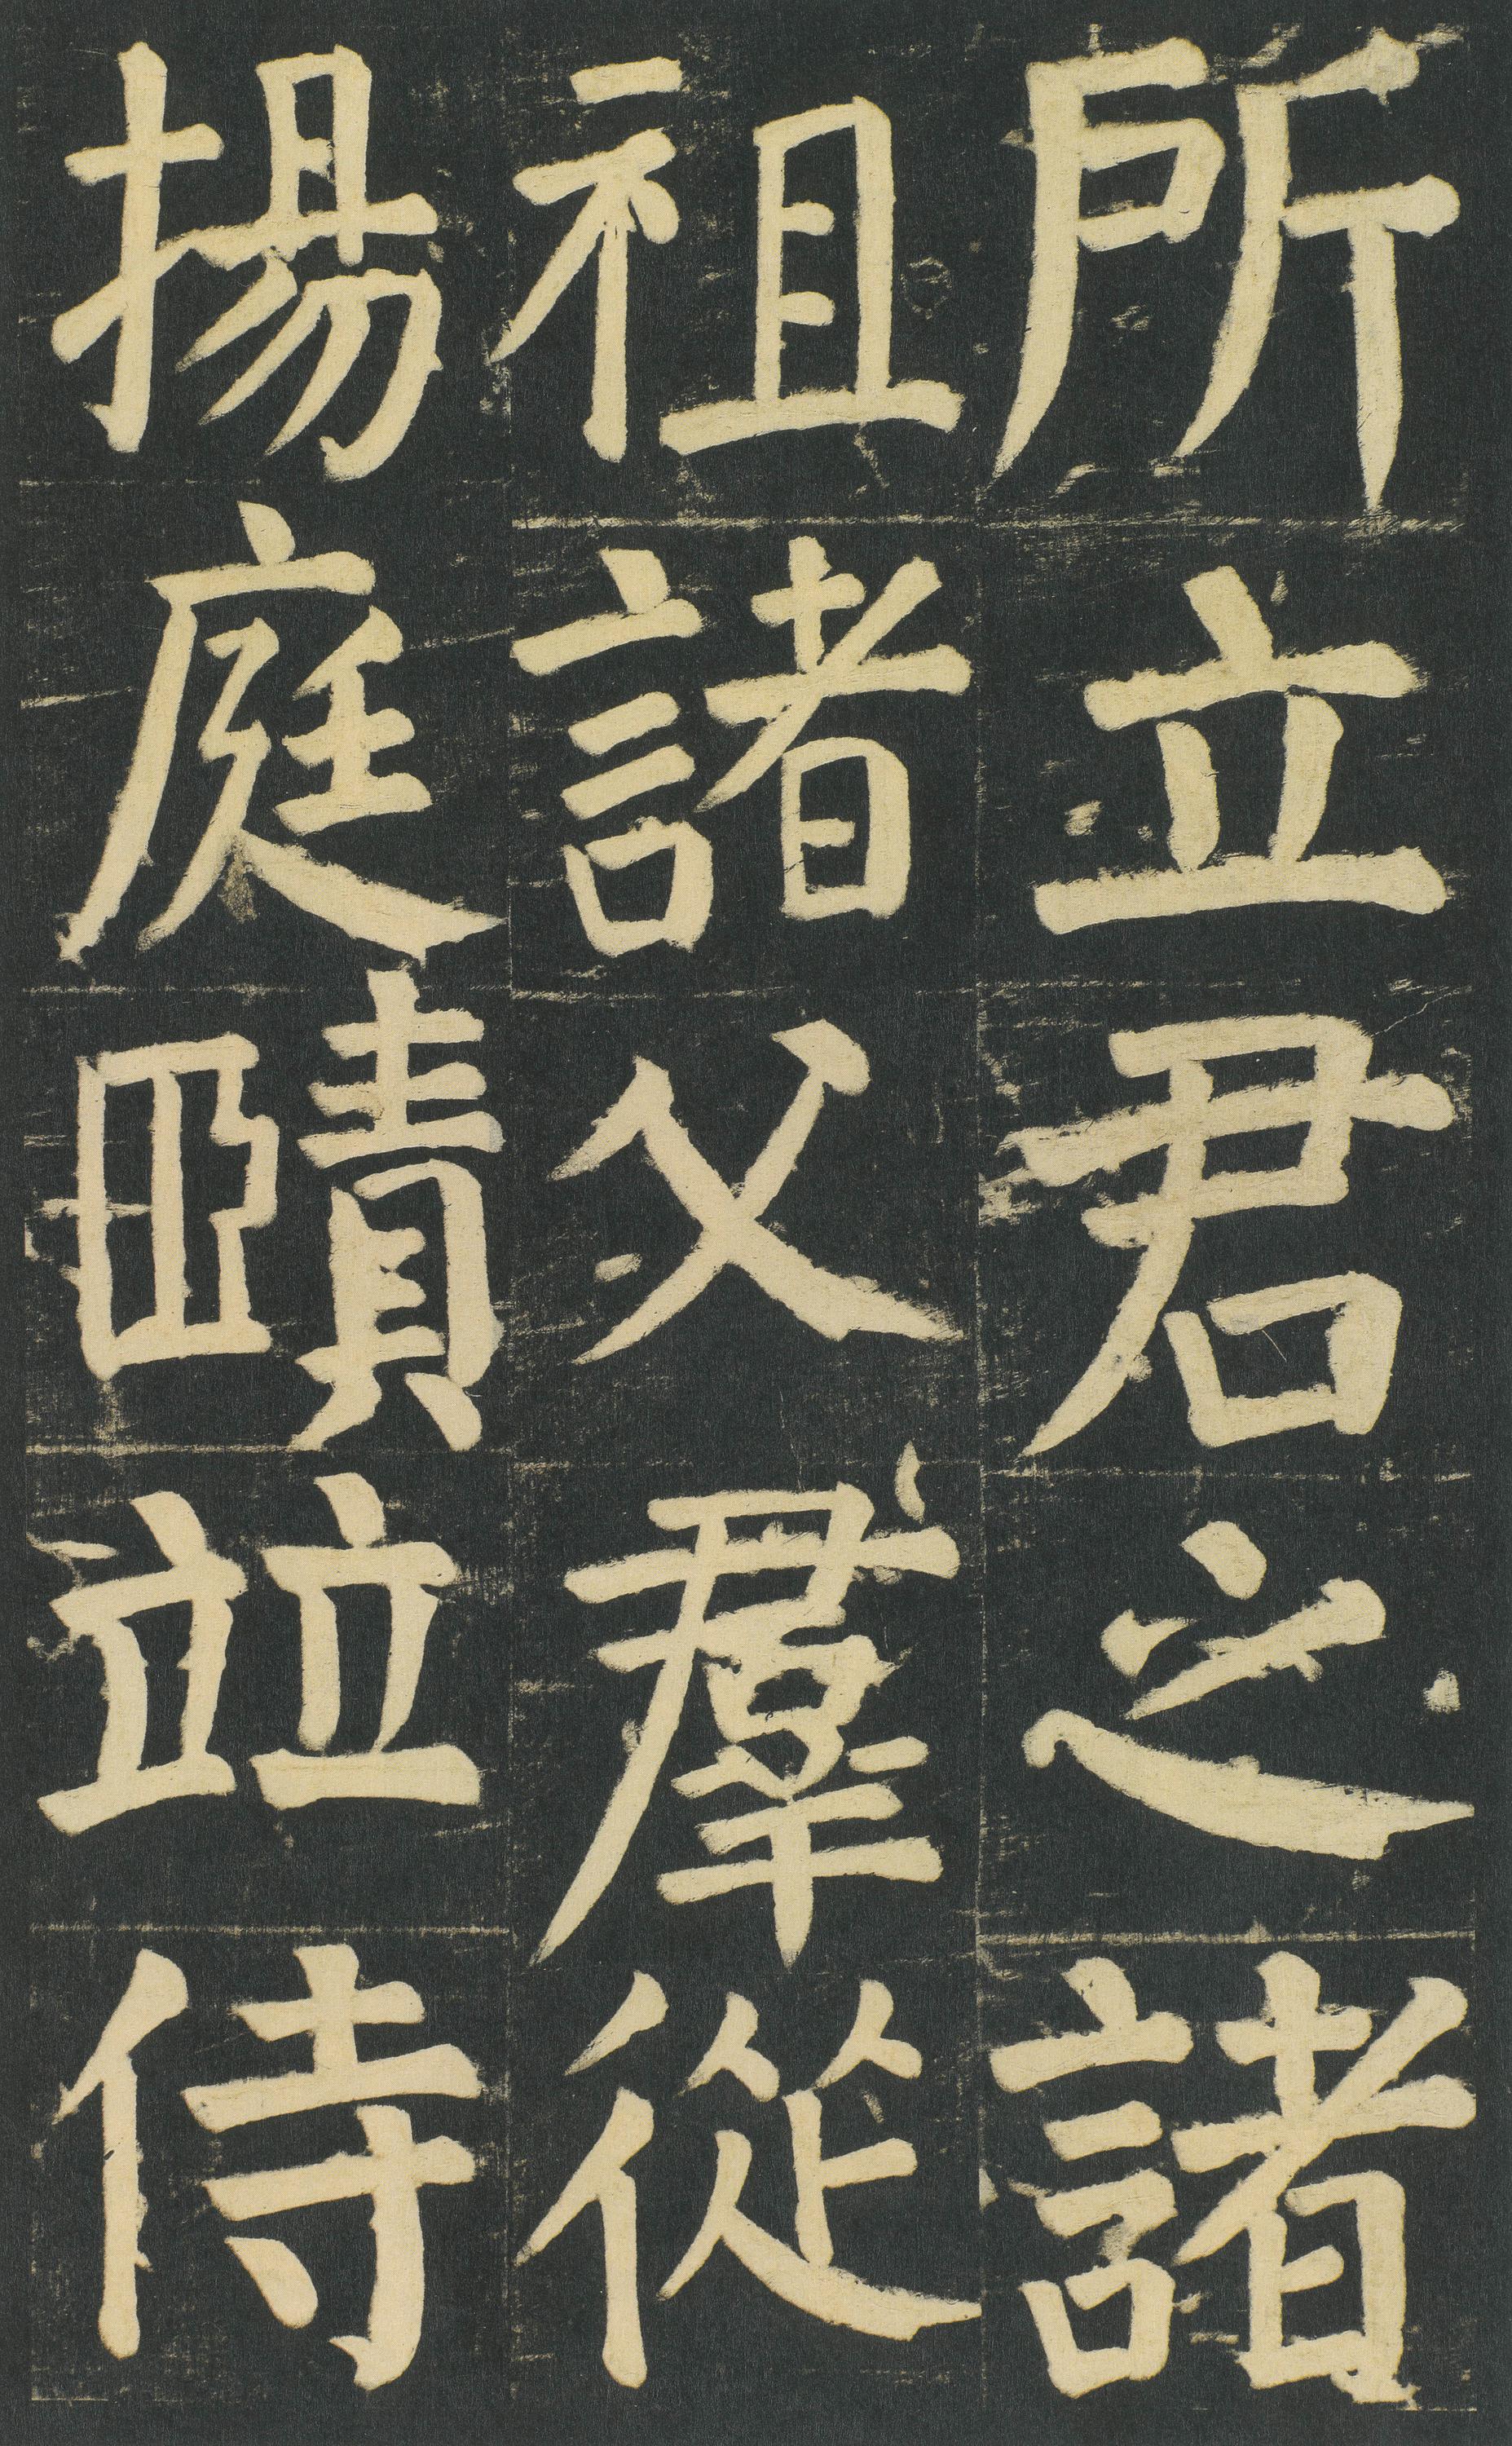 所立君之諸
祖諸父羣從
揚庭賾並侍